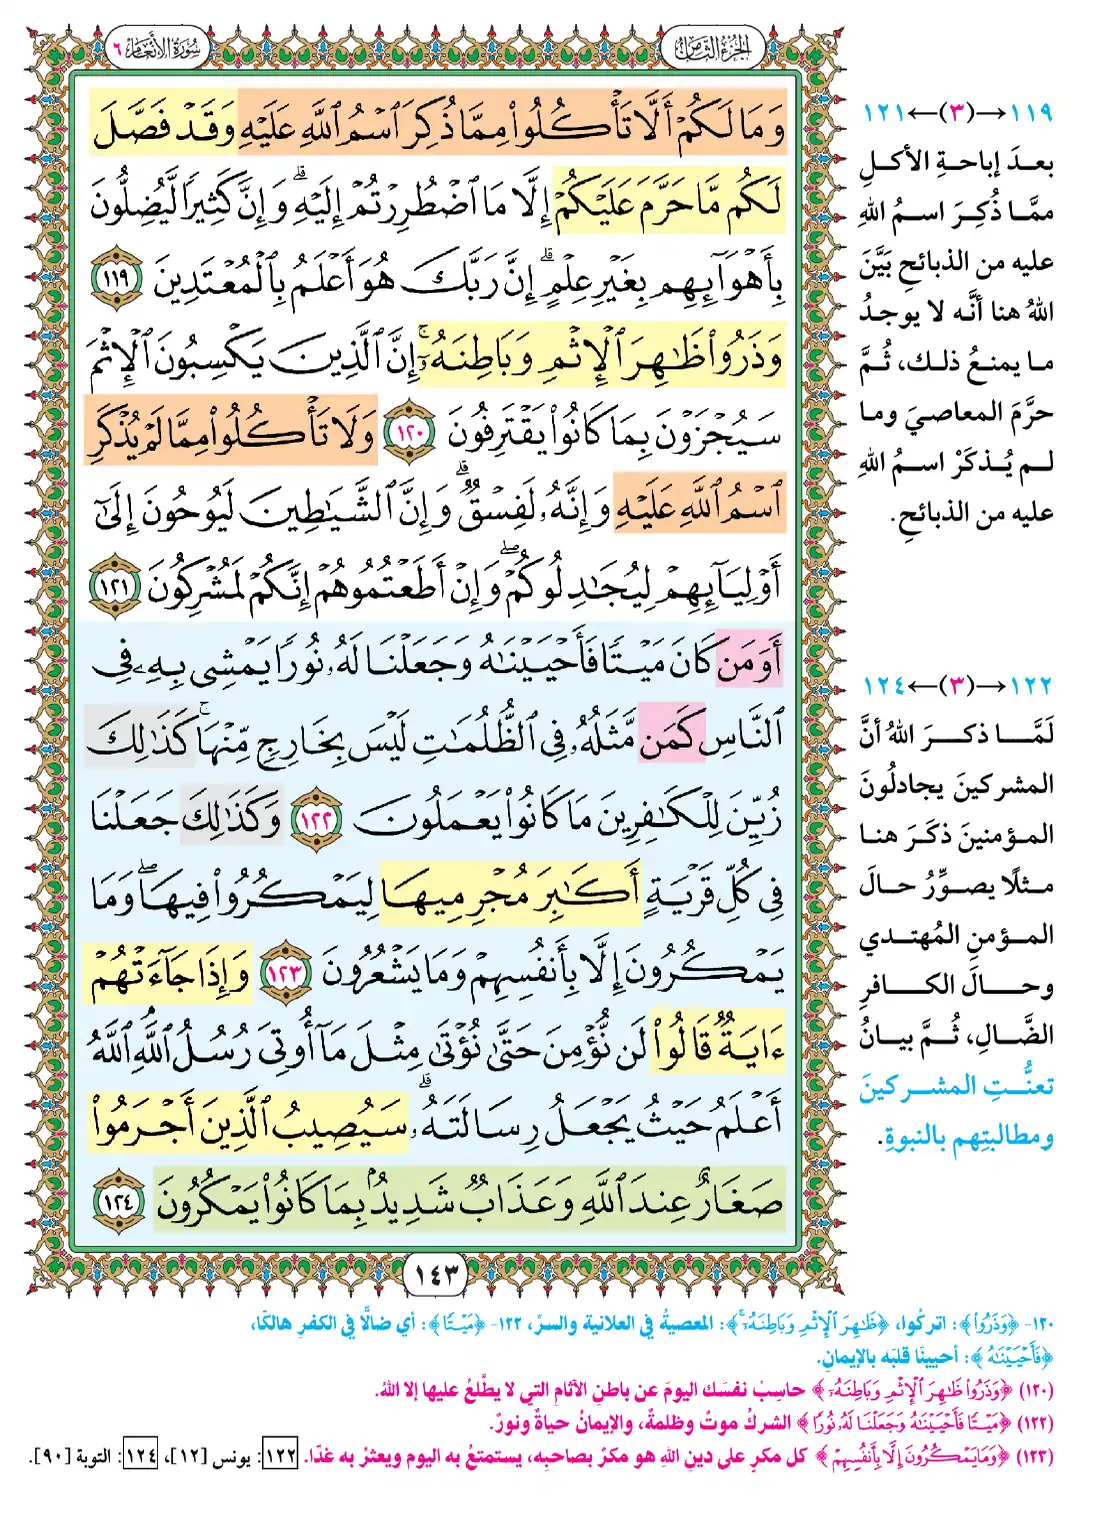 الجزء الثامن
سورة الأنعام ٦
وَمَا لَكُمْ أَلَّا تَأْكُلُوا۟ مِمَّا ذُكِرَ ٱسْمُ ٱللَّهِ عَلَيْهِ وَقَدْ فَصَّلَ
لَكُم مَّا حَرَّمَ عَلَيْكُمْ إِلَّا مَا ٱضْطُرِرْتُمْ إِلَيْهِ ۗ وَإِنَّ كَثِيرًا لَّيُضِلُّونَ
بِأَهْوَآئِهِم بِغَيْرِ عِلْمٍ ۗ إِنَّ رَبَّكَ هُوَ أَعْلَمُ بِٱلْمُعْتَدِينَ ١١٩
وَذَرُوا۟ ظَٰهِرَ ٱلْإِثْمِ وَبَاطِنَهُۥٓ ۚ إِنَّ ٱلَّذِينَ يَكْسِبُونَ ٱلْإِثْمَ
سَيُجْزَوْنَ بِمَا كَانُوا۟ يَقْتَرِفُونَ ١٢٠ وَلَا تَأْكُلُوا۟ مِمَّا لَمْ يُذْكَرِ
ٱسْمُ ٱللَّهِ عَلَيْهِ وَإِنَّهُۥ لَفِسْقٌ ۗ وَإِنَّ ٱلشَّيَٰطِينَ لَيُوحُونَ إِلَىٰٓ
أَوْلِيَآئِهِمْ لِيُجَٰدِلُوكُمْ ۖ وَإِنْ أَطَعْتُمُوهُمْ إِنَّكُمْ لَمُشْرِكُونَ ١٢١
أَوَمَن كَانَ مَيْتًا فَأَحْيَيْنَٰهُ وَجَعَلْنَا لَهُۥ نُورًا يَمْشِى بِهِۦ فِى
ٱلنَّاسِ كَمَن مَّثَلُهُۥ فِى ٱلظُّلُمَٰتِ لَيْسَ بِخَارِجٍ مِّنْهَا ۚ كَذَٰلِكَ
زُيِّنَ لِلْكَٰفِرِينَ مَا كَانُوا۟ يَعْمَلُونَ ١٢٢ وَكَذَٰلِكَ جَعَلْنَا
فِى كُلِّ قَرْيَةٍ أَكَٰبِرَ مُجْرِمِيهَا لِيَمْكُرُوا۟ فِيهَا ۖ وَمَا
يَمْكُرُونَ إِلَّا بِأَنفُسِهِمْ وَمَا يَشْعُرُونَ ١٢٣ وَإِذَا جَآءَتْهُمْ
ءَايَةٌ قَالُوا۟ لَن نُّؤْمِنَ حَتَّىٰ نُؤْتَىٰ مِثْلَ مَآ أُوتِىَ رُسُلُ ٱللَّهِ ۘ ٱللَّهُ
أَعْلَمُ حَيْثُ يَجْعَلُ رِسَالَتَهُۥ ۗ سَيُصِيبُ ٱلَّذِينَ أَجْرَمُوا۟
صَغَارٌ عِندَ ٱللَّهِ وَعَذَابٌ شَدِيدٌۢ بِمَا كَانُوا۟ يَمْكُرُونَ ١٢٤
١٤٣
١١٩→(٣)←١٢١
بعدَ إباحةِ الأكلِ
ممَّا ذُكِرَ اسمُ اللهِ
عليه من الذبائحِ بَيَّنَ
اللهُ هنا أنَّه لا يوجدُ
ما يمنعُ ذلك، ثُمَّ
حرَّمَ المعاصيَ وما
لم يُذكَرْ اسمُ اللهِ
عليه من الذبائحِ.
١٢٢→(٣)←١٢٤
لَمَّا ذكرَ اللهُ أنَّ
المشركينَ يجادلُونَ
المؤمنينَ ذكَرَ هنا
مثلًا يصوِّرُ حالَ
المؤمنِ المُهتدي
وحالَ الكافرِ
الضَّالِ، ثُمَّ بيانُ
تعنُّتِ المشركينَ
ومطالبتِهم بالنبوةِ.
١٢٠- ﴿وَذَرُوا۟﴾: اتركُوا، ﴿ظَٰهِرَ ٱلْإِثْمِ وَبَاطِنَهُۥٓ ۚ﴾: المعصيةُ في العلانية والسرِّ، ١٢٢- ﴿مَيْتًا﴾: أي ضالًّا في الكفرِ هالكًا،
﴿فَأَحْيَيْنَٰهُ﴾: أحيينَا قلبَه بالإيمانِ.
(١٢٠) ﴿وَذَرُوا۟ ظَٰهِرَ ٱلْإِثْمِ وَبَاطِنَهُۥٓ﴾ حاسِبْ نفسَك اليومَ عن باطنِ الآثامِ التي لا يطَّلعُ عليها إلا اللهُ.
(١٢٢) ﴿مَيْتًا فَأَحْيَيْنَٰهُ وَجَعَلْنَا لَهُۥ نُورًا﴾ الشركُ موتٌ وظلمةٌ، والإيمانُ حياةٌ ونورٌ.
(١٢٣) ﴿وَمَا يَمْكُرُونَ إِلَّا بِأَنفُسِهِمْ﴾ كل مكرٍ على دينِ اللهِ هو مكرٌ بصاحبِه، يستمتعُ به اليوم ويعثرُ به غدًا. ١٢٢: يونس [١٢]، ١٢٤: التوبة [٩٠].